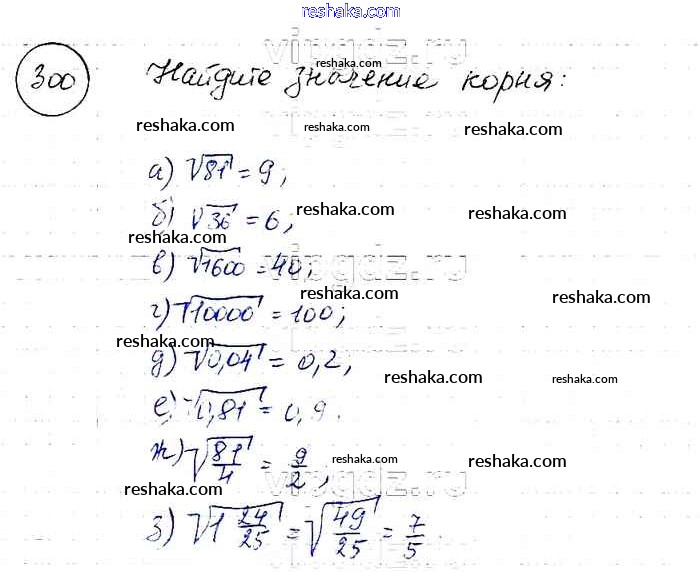 reshaka.com
vipgdz.ru
reshaka.com
300 Найдите значение корня:
reshaka.com
reshaka.com reshaka.com reshaka.com
а) √81 = 9;
б) √36 = 6; reshaka.com reshaka.com
reshaka.com
vipgdz.ru
в) √1600 = 40;
reshaka.com reshaka.com
г) √10000 = 100;
reshaka.com
д) √0,04 = 0,2;
reshaka.com reshaka.com
е) √0,81 = 0,9.
ж) √81/4 = 9/2; reshaka.com reshaka.com
vipgdz.ru
reshaka.com reshaka.com
з) √1 24/25 = √49/25 = 7/5.